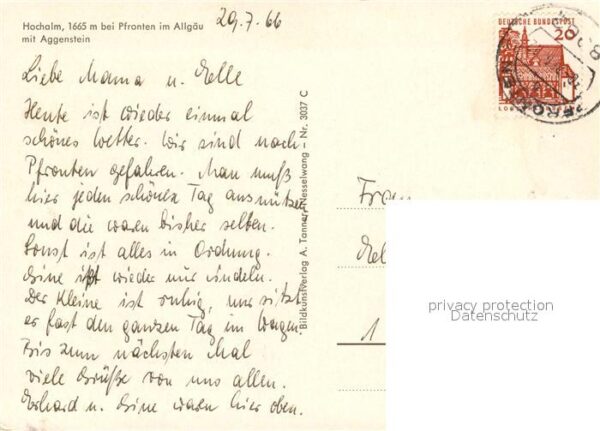 Hochalm, 1665 m bei Pfronten im Allgäu
mit Aggenstein
29.7.66
Liebe Mama u.
Heute ist wieder einmal
schönes Wetter. Wir sind nach
Pfronten gefahren. Man muß
hier jeden schönen Tag ausnützen
und die waren bisher selten.
Sonst ist alles in Ordnung.
ißt wieder nur Nudeln.
Der Kleine ist ruhig, nur sitzt
er fast den ganzen Tag im Wagen.
Bis zum nächsten Mal
viele Grüße von uns allen.
Erhard u. waren hier oben.
Bildkunstverlag A. Tanner, Nesselwang – Nr. 3037 C
DEUTSCHE BUNDESPOST
20
Frau
1
privacy protection
Datenschutz